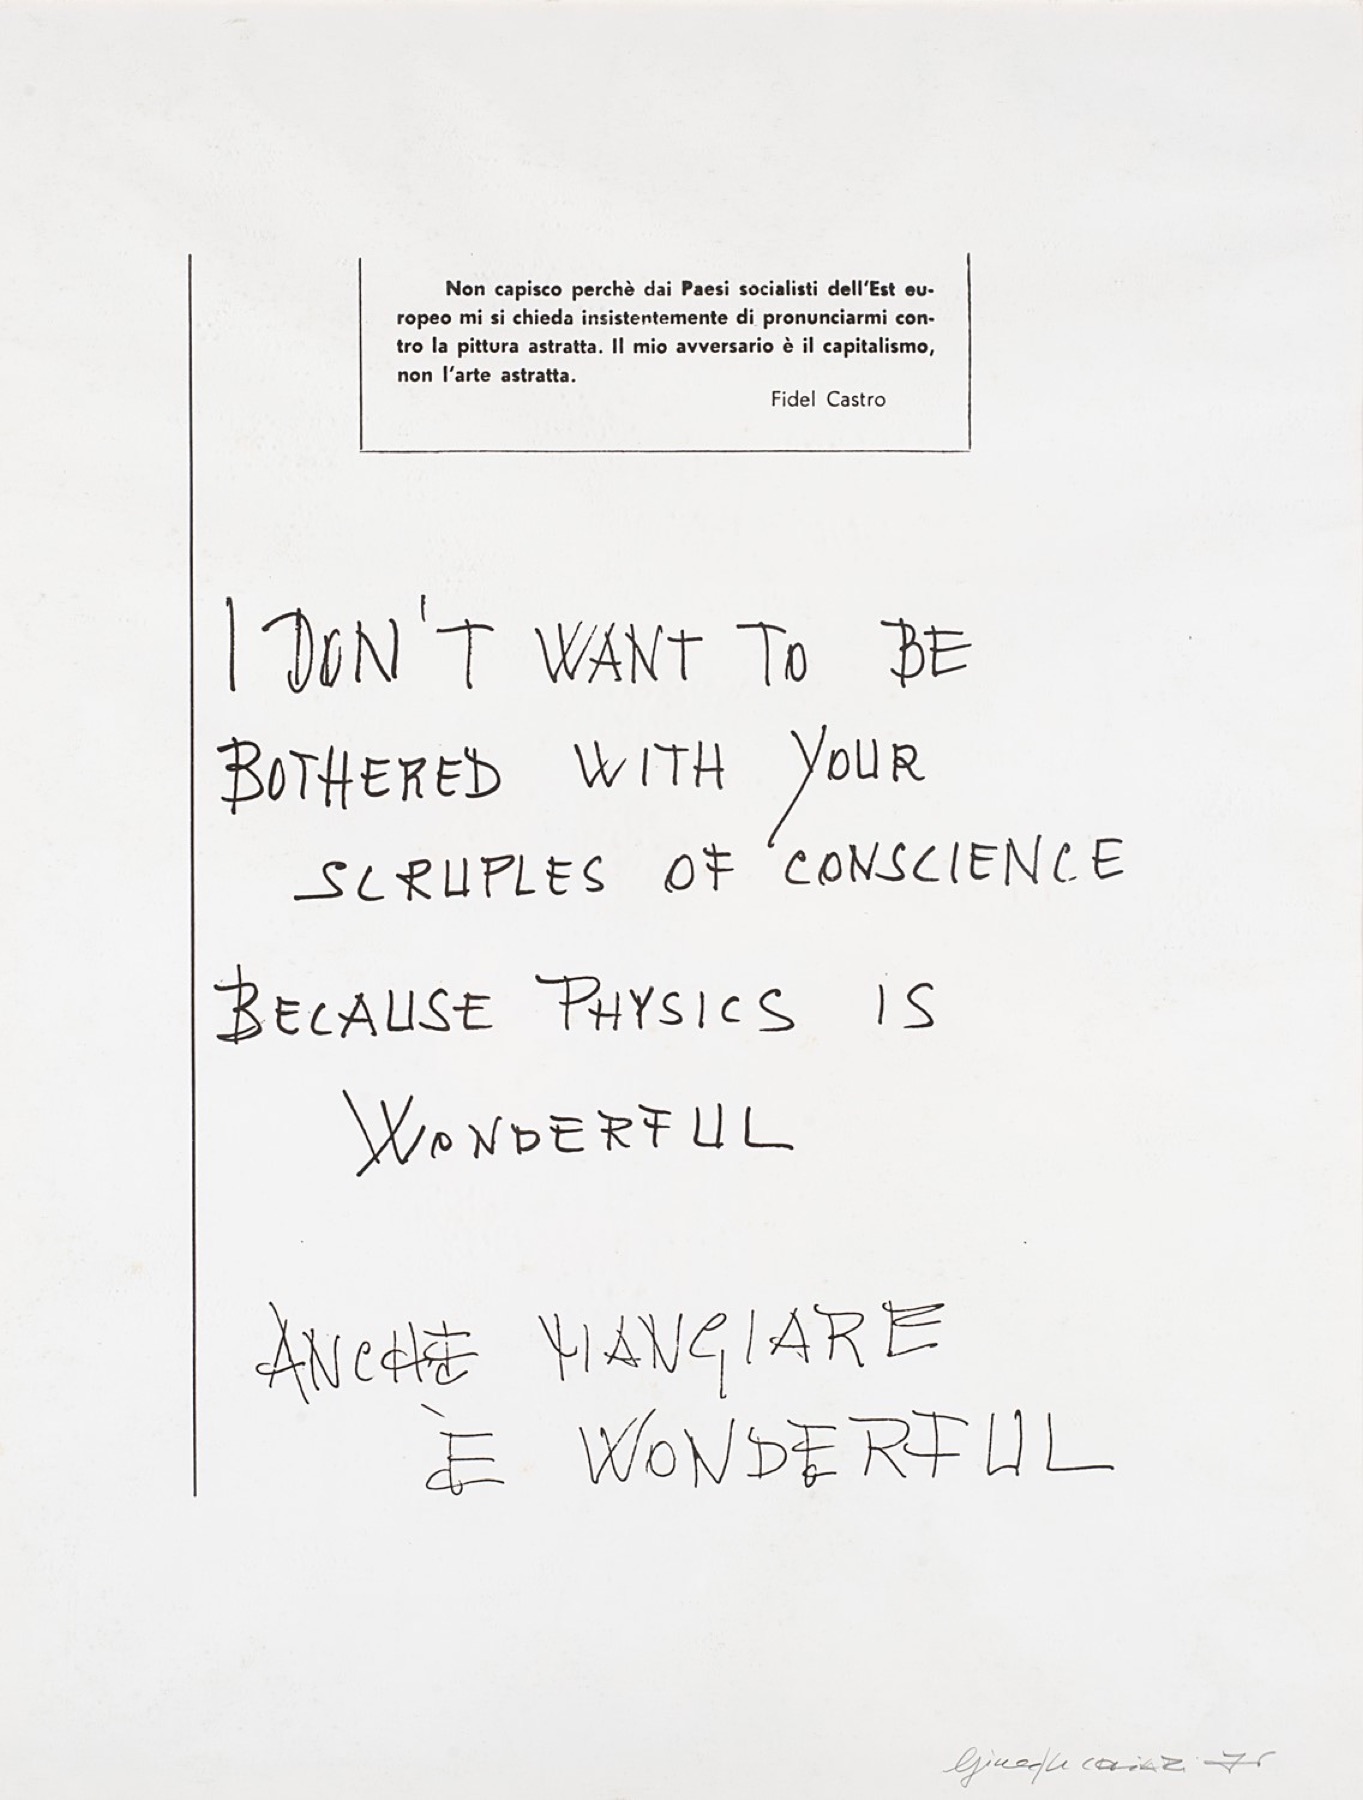 Non capisco perchè dai Paesi socialisti dell'Est eu-
ropeo mi si chieda insistentemente di pronunciarmi con-
tro la pittura astratta. Il mio avversario è il capitalismo,
non l'arte astratta.
Fidel Castro
I DON'T WANT TO BE
BOTHERED WITH YOUR
SCRUPLES OF CONSCIENCE
BECAUSE PHYSICS IS
WONDERFUL
ANCHE MANGIARE
È WONDERFUL